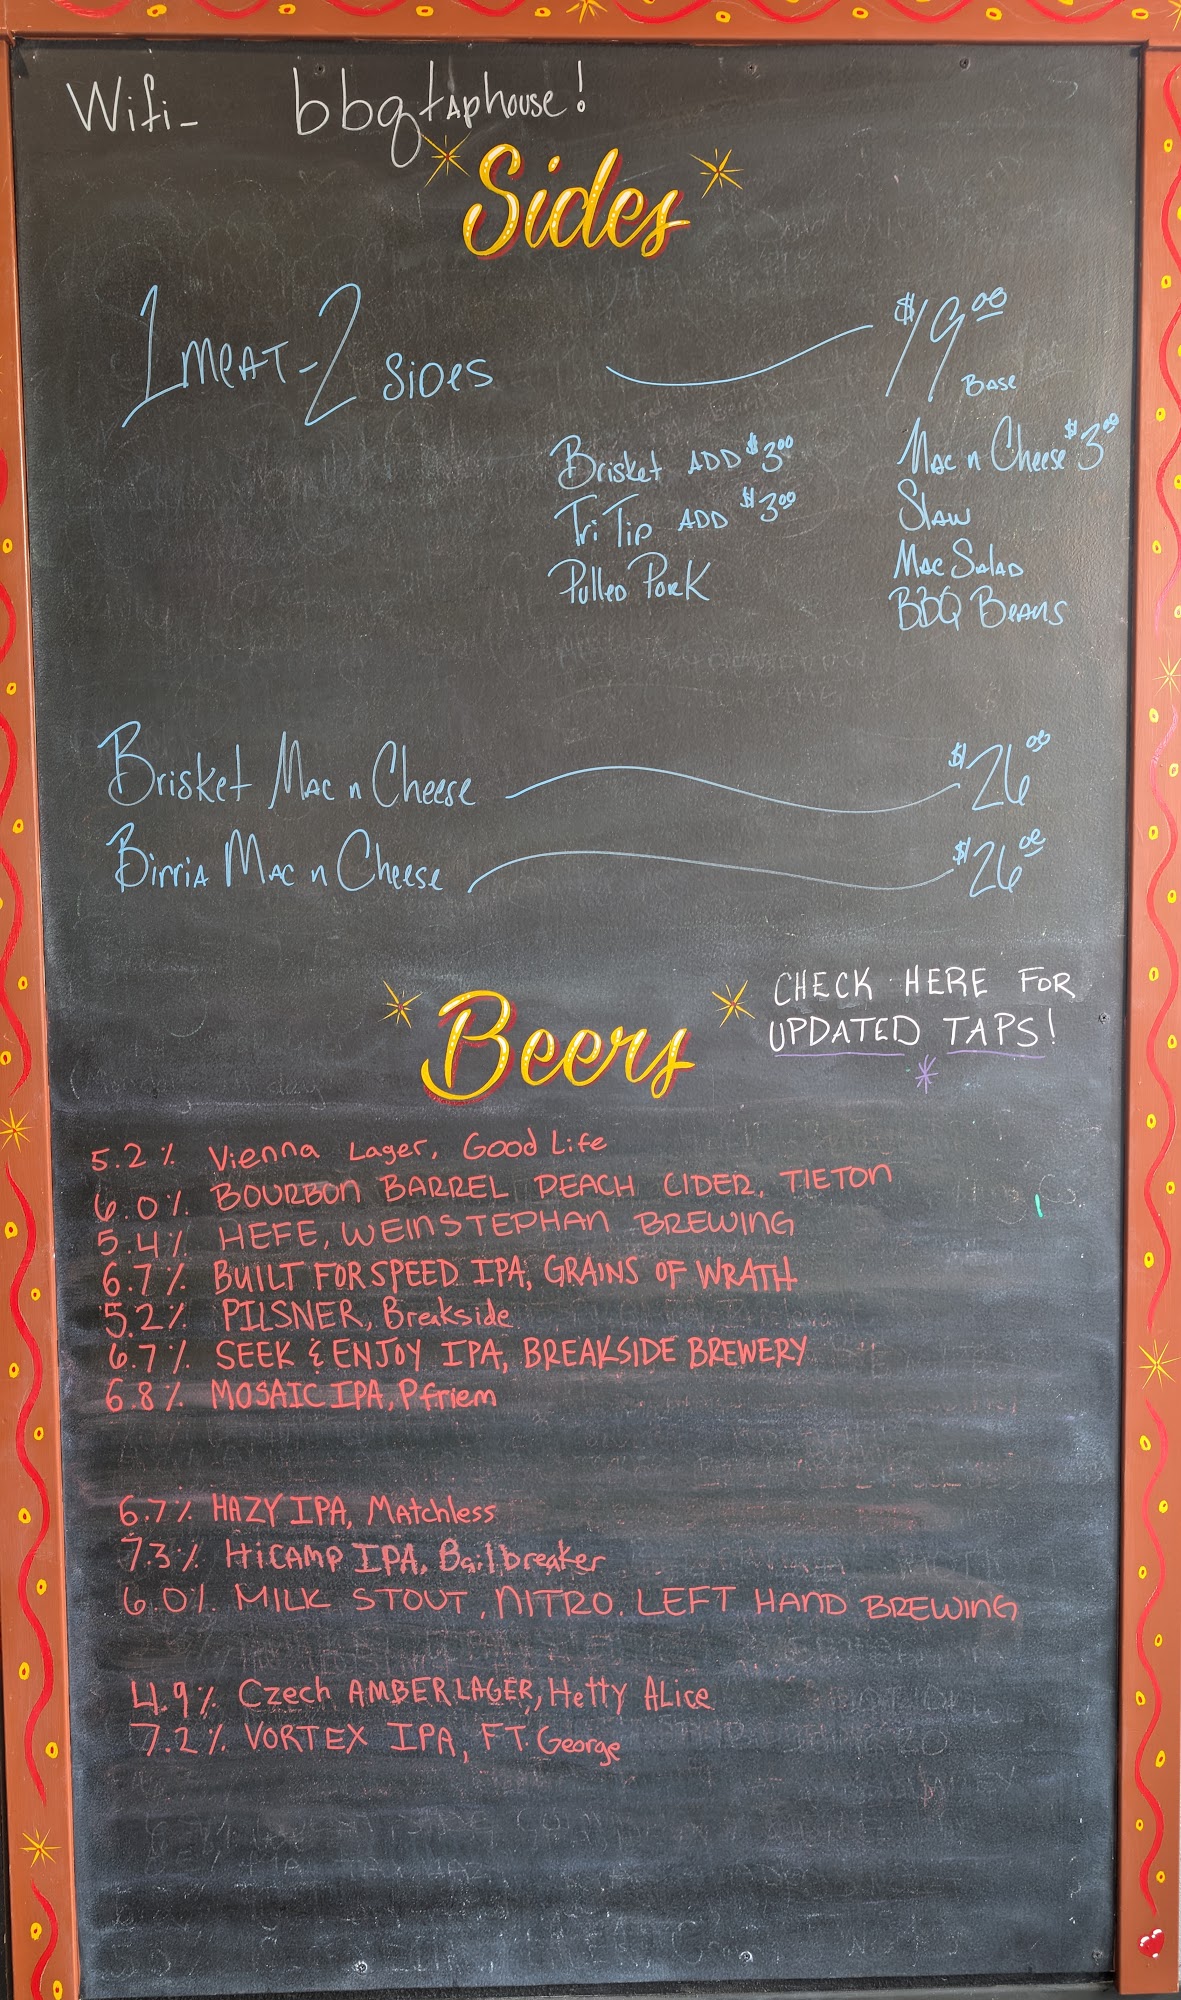 Wifi- bbqtaphouse!
Sides
1 MEAT-2 SIDES $19.00
BASE
Brisket ADD $3.00
Tri Tip ADD $3.00
Pulled Pork
Mac n Cheese $3.00
Slaw
Mac Salad
BBQ Beans
Brisket Mac n Cheese $26.00
Birria Mac n Cheese $26.00
Beers
CHECK HERE FOR
UPDATED TAPS!
5.2% Vienna Lager, Good Life
6.0% BOURBON BARREL PEACH CIDER, TIETON
5.4% HEFE, WEINSTEPHAN BREWING
6.7% BUILT FOR SPEED IPA, GRAINS OF WRATH
5.2% PILSNER, Breakside
6.7% SEEK & ENJOY IPA, BREAKSIDE BREWERY
6.8% MOSAIC IPA, Pfriem
6.7% HAZY IPA, Matchless
7.3% HiCAMP IPA, Bailbreaker
6.0% MILK STOUT, NITRO. LEFT HAND BREWING
4.9% Czech AMBER LAGER, Hetty Alice
7.2% VORTEX IPA, FT. George